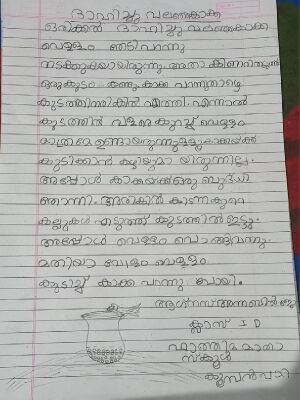 ദാഹിച്ചു വലഞ്ഞകാക്ക
ഒരിക്കൽ ദാഹിച്ചു വലഞ്ഞകാക്ക
വെള്ളം ഞടി പറന്നു
നടക്കുകയായിരുന്നു. അതാ കിണറിനടുത്ത്
ഒരുകുടം കണ്ടു. കാക്ക പറന്നുതാഴെ
കുടത്തിനരികിൽ എത്തി. എന്നാൽ
കുടത്തിൽ വളരെ കുറച്ച് വെള്ളം
മാത്രമേ ഉണ്ടായിരുന്നുള്ളുകാക്കയ്ക്ക്
കുടിക്കാൻ കഴിയുമാ യിരുന്നില്ല.
അപ്പോൾ കാക്കയ്ക്ക്ഒരു ബുദ്ധി
തോന്നി. അരികിൽ കിടന്ന കുറെ
കല്ലുകൾ എടുത്ത് കുടത്തിൽ ഇട്ടു.
അപ്പോൾ വെള്ളം പൊങ്ങിവന്നു.
മതിയാ വോളം വെള്ളം
കുടിച്ച് കാക്ക പറന്നു പോയി.
ആഗ്നസ് അന്ന ബിൻജോ
ക്ലാസ് I D
ഫാത്തിമ മാതാ
സ്കൂൾ
കൂമ്പൻപാറ